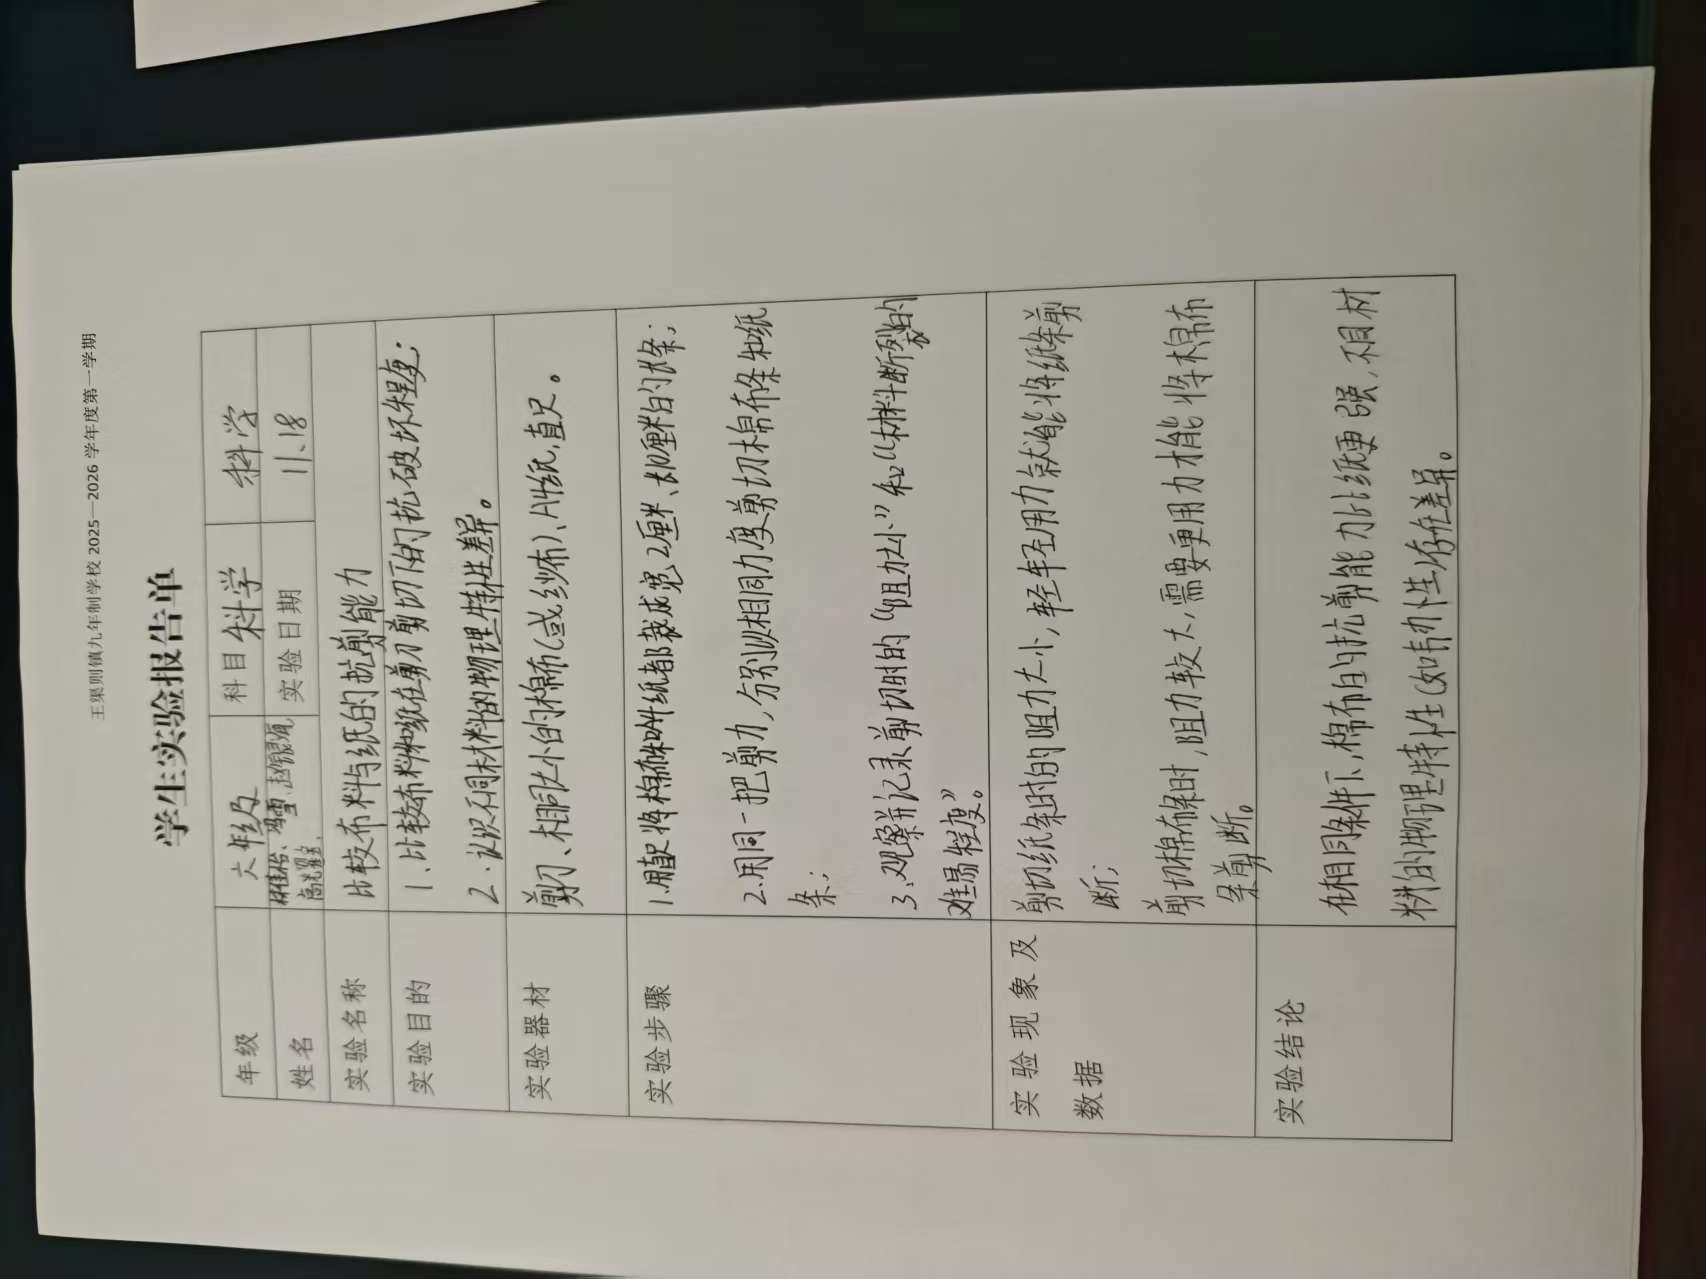 王渠则镇九年制学校 2025—2026 学年度第一学期
学生实验报告单
年级 六年级 科目 科学 科学
姓名 冯雪 赵银娟 实验日期 11、18
实验名称 比较布料与纸的抗剪能力
实验目的 1.比较布料和纸在剪刀剪切下的抗破坏程度；
2.认识不同材料的物理特性差异。
实验器材 剪刀、相同大小的棉布（或纱布）、A4纸，直尺。
实验步骤 1.用直尺将棉布和A4纸都裁成宽2厘米、长厘米的长条；
2.用同一把剪刀，分别以相同力度剪切棉布条和纸
条；
3.观察并记录剪切时的“阻力大小”和“材料断裂的
难易程度”。
实验现象及
数据
剪切纸条时的阻力大小，轻轻用力就能将纸条剪
断；
剪切棉布条时，阻力较大，需要更用力才能将棉布
条剪断。
实验结论 在相同条件下，棉布的抗剪能力比纸更强，不同材
料的物理特性（如韧性）存在差异。